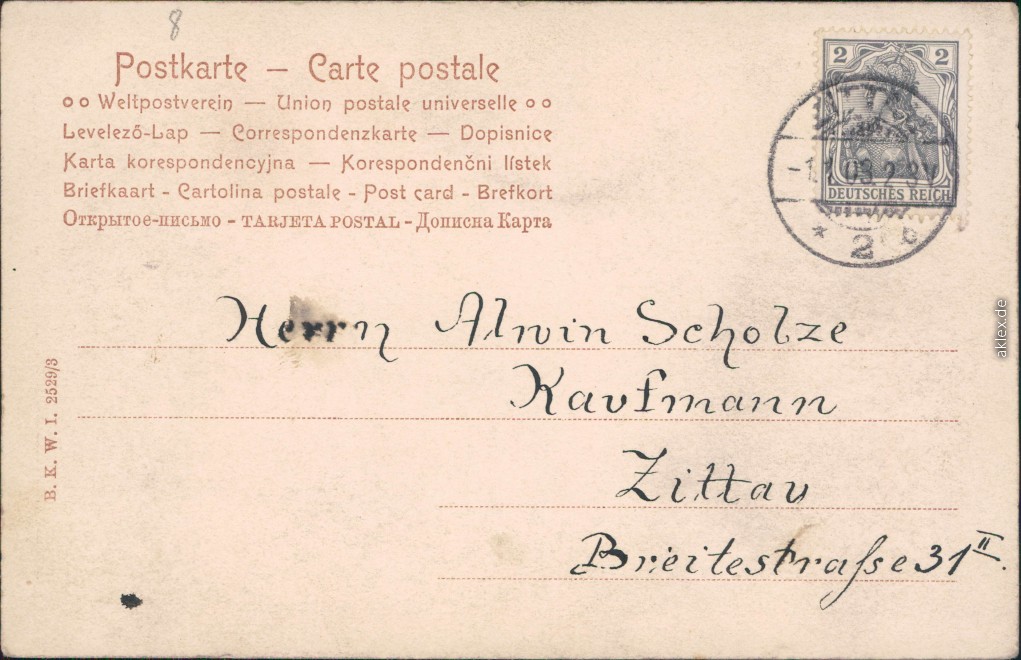 8
Postkarte — Carte postale
Weltpostverein — Union postale universelle
Levelező-Lap — Correspondenzkarte — Dopisnice
Karta korespondencyjna — Korespondenčni lístek
Briefkaart - Cartolina postale - Post card - Brefkort
Открытое-письмо - TARJETA POSTAL - Дописна Карта
2 2
DEUTSCHES REICH
ZITTAU
* 2 b
Herrn Alwin Scholze
Kaufmann
Zittau
Breitestraſse 31 II.
B. K. W. I. 2529/3
aklex.de